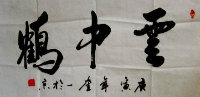 雲中鶴
庚寅年奎一於京